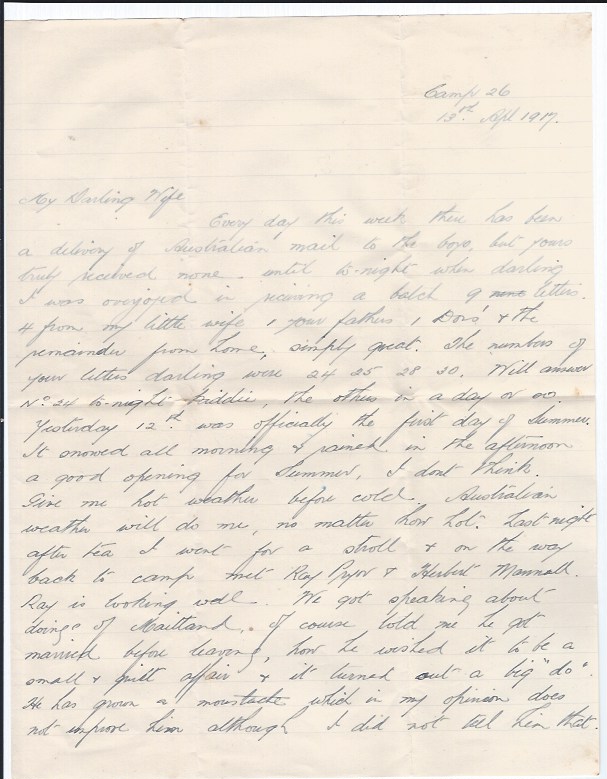 Camp 26
13th Apl 1917.
My Darling Wife
Every day this week there has been
a delivery of Australian mail to the boys, but yours
truly received none until to-night when darling
I was overjoyed in receiving a batch 9 letters.
4 from my little wife 1 your fathers 1 Dors' & the
remainder from home, simply great. The numbers of
your letters darling were 24 25 28 30. Will answer
No. 24 to-night, the others in a day or so.
Yesterday 12th was officially the first day of Summer.
It snowed all morning & rained in the afternoon
a good opening for Summer, I dont think.
Give me hot weather before cold. Australian
weather will do me, no matter how hot. Last night
after tea I went for a stroll & on the way
back to camp met Ray Pryor & Herbert
Ray is looking well. We got speaking about
doings of Maitland, of course told me he got
married before leaving, how he wished it to be a
small & quitt affair & it turned out a big "do".
He has grown a moustache which in my opinion does
not improve him although I did not tell him that.